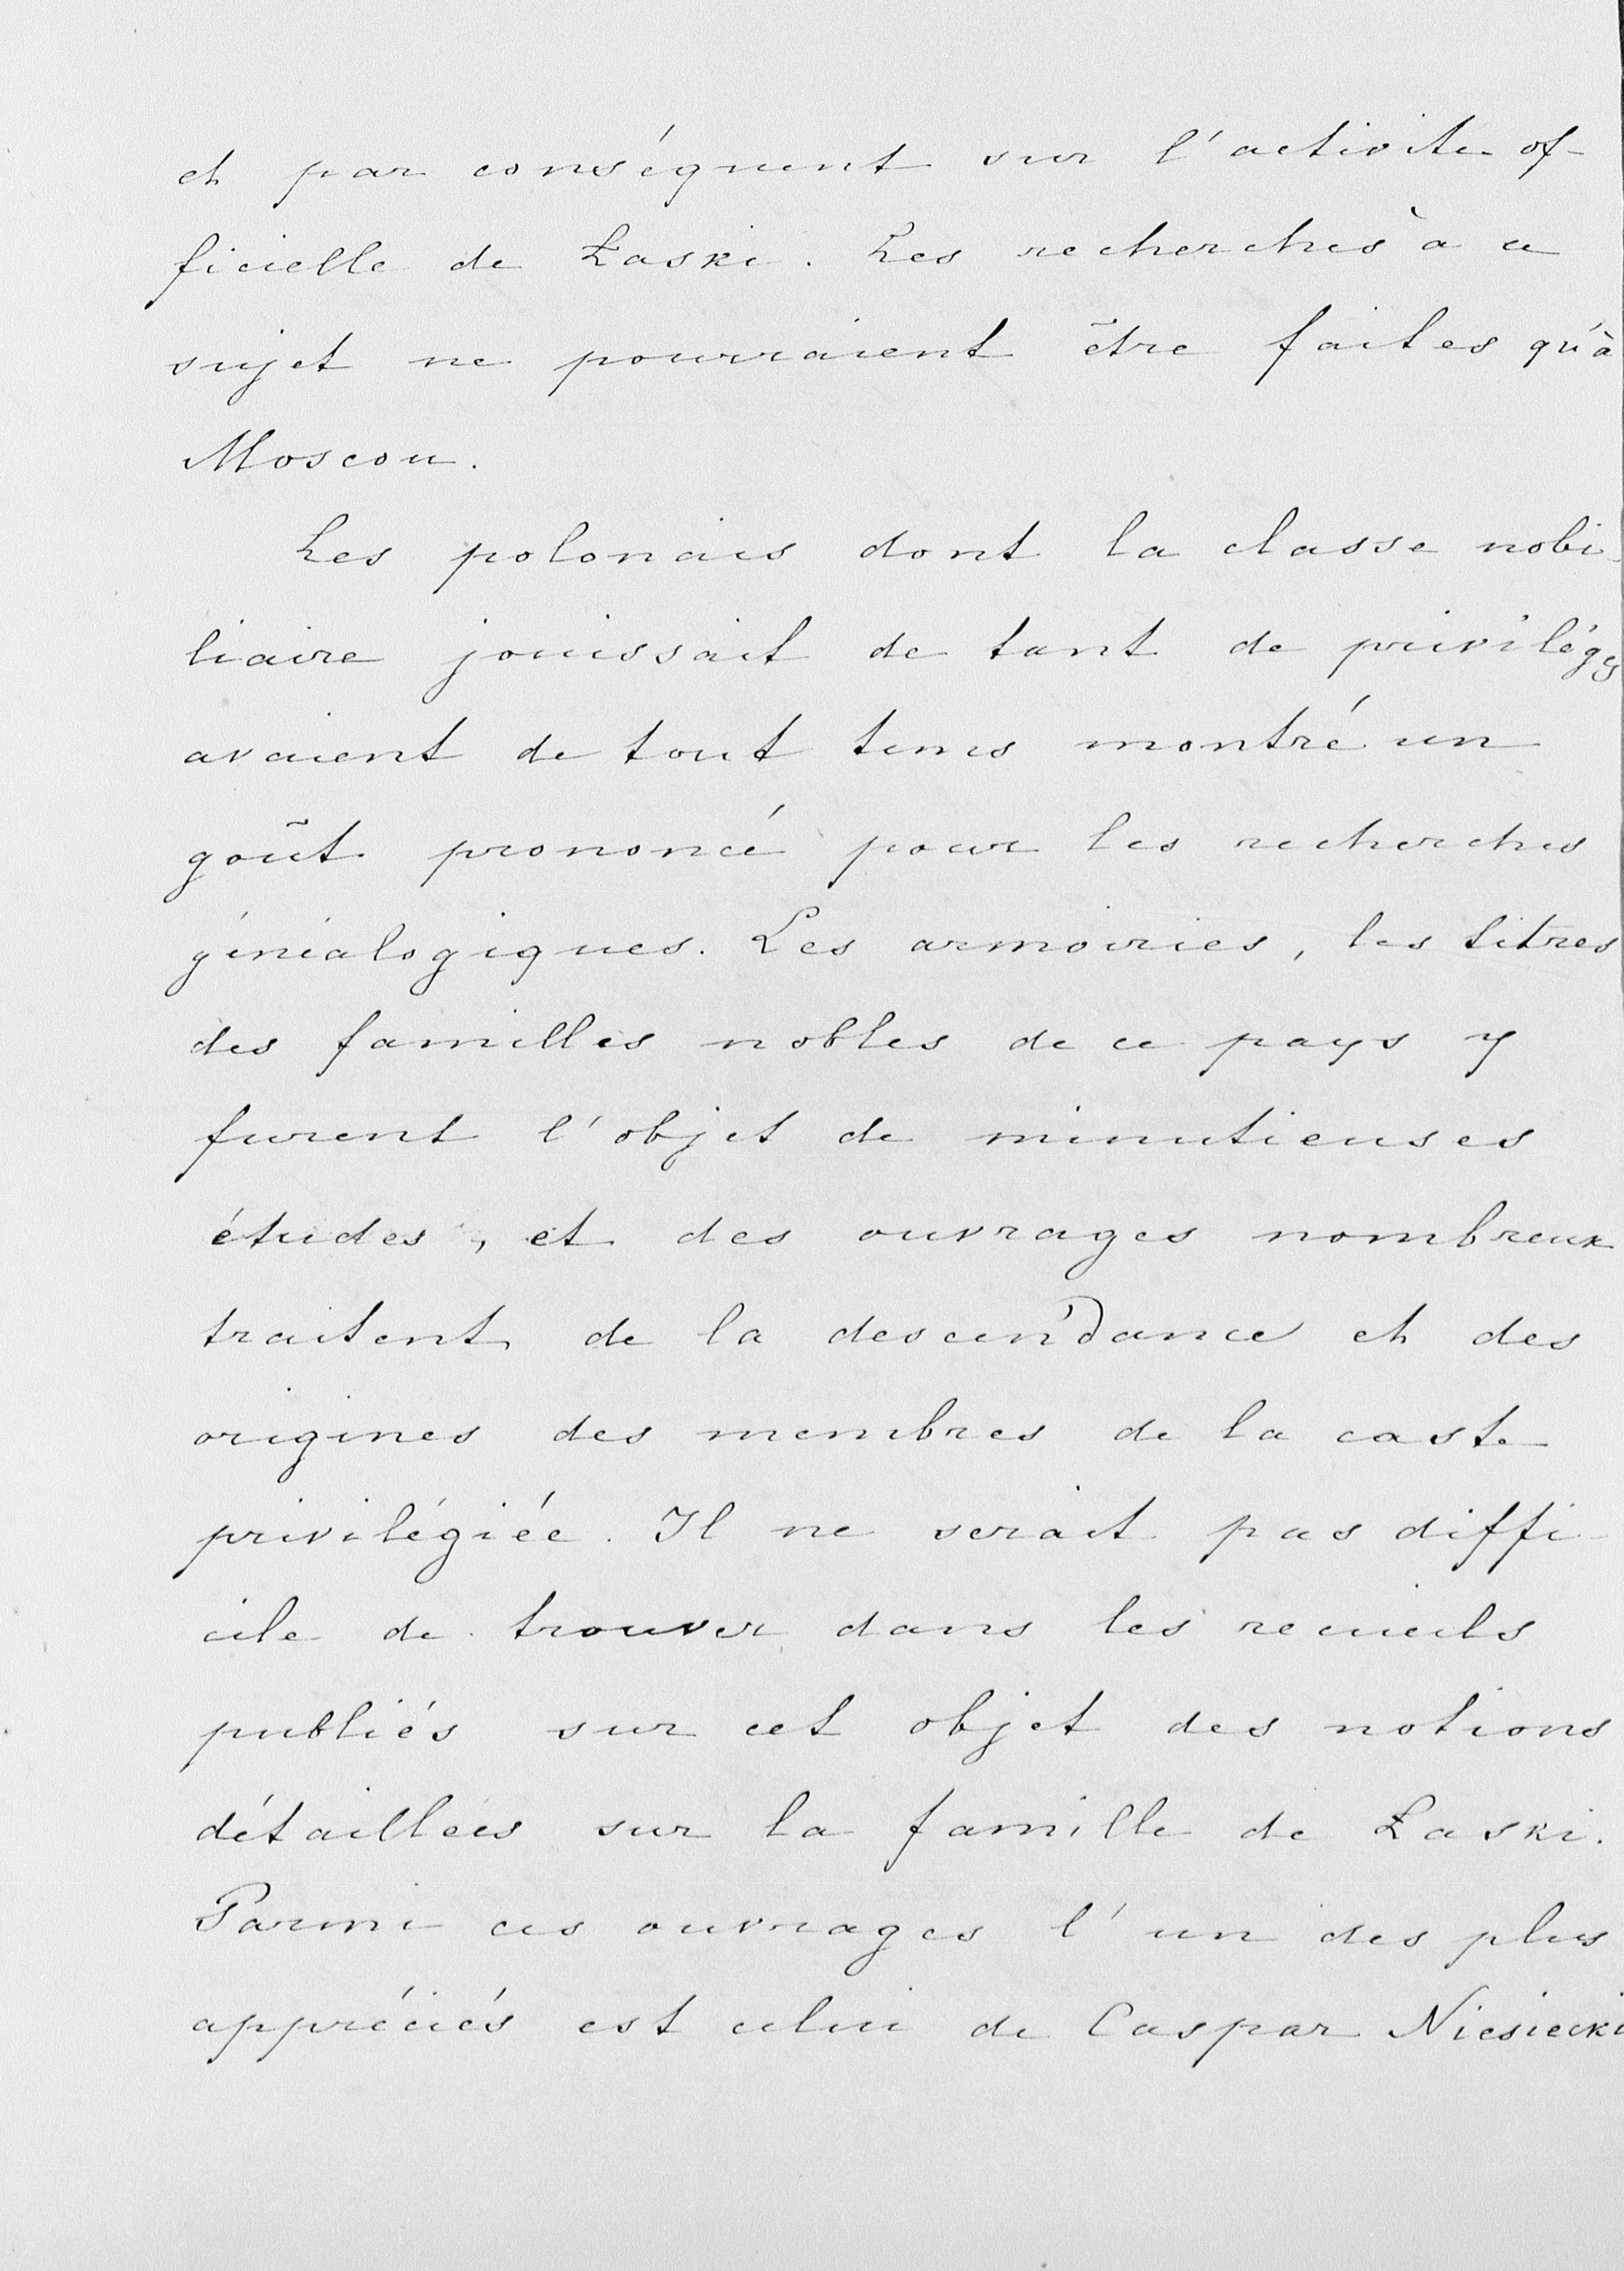 et par conséquent sur l'activité of-
ficielle de Łaski. Les recherches à ce
sujet ne pourraient être faites qu'à
Moscou.
Les polonais dont la classe nobi-
liaire jouissait de tant de privilèges
avaient de tout tems montré un
goût prononcé pour les recherches
généalogiques. Les armoiries, les titres
des familles nobles de ce pays y
furent l'objet de minutieuses
études, et des ouvrages nombreux
traitent de la descendance et des
origines des membres de la caste
privilégiée. Il ne serait pas diffi-
cile de trouver dans les recueils
publiés sur cet objet des notions
détaillées sur la famille de Łaski.
Parmi ces ouvrages l'un des plus
appréciés est celui de Caspar Niesiecki